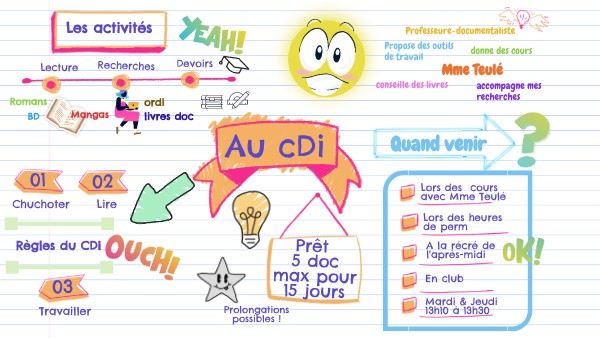 Les activités
YEAH!
Lecture
Recherches
Devoirs
Romans
BD
Mangas
ordi
livres doc
Professeure-documentaliste
Propose des outils
de travail
donne des cours
Mme Teulé
conseille des livres
accompagne mes
recherches
Au cDi
Quand venir
?
01
02
Chuchoter
Lire
Règles du CDI
OUCH!
03
Travailler
Prêt
5 doc
max pour
15 jours
Prolongations
possibles !
Lors des cours
avec Mme Teulé
Lors des heures
de perm
A la récré de
l'après-midi
OK!
En club
Mardi & Jeudi
13h10 à 13h30